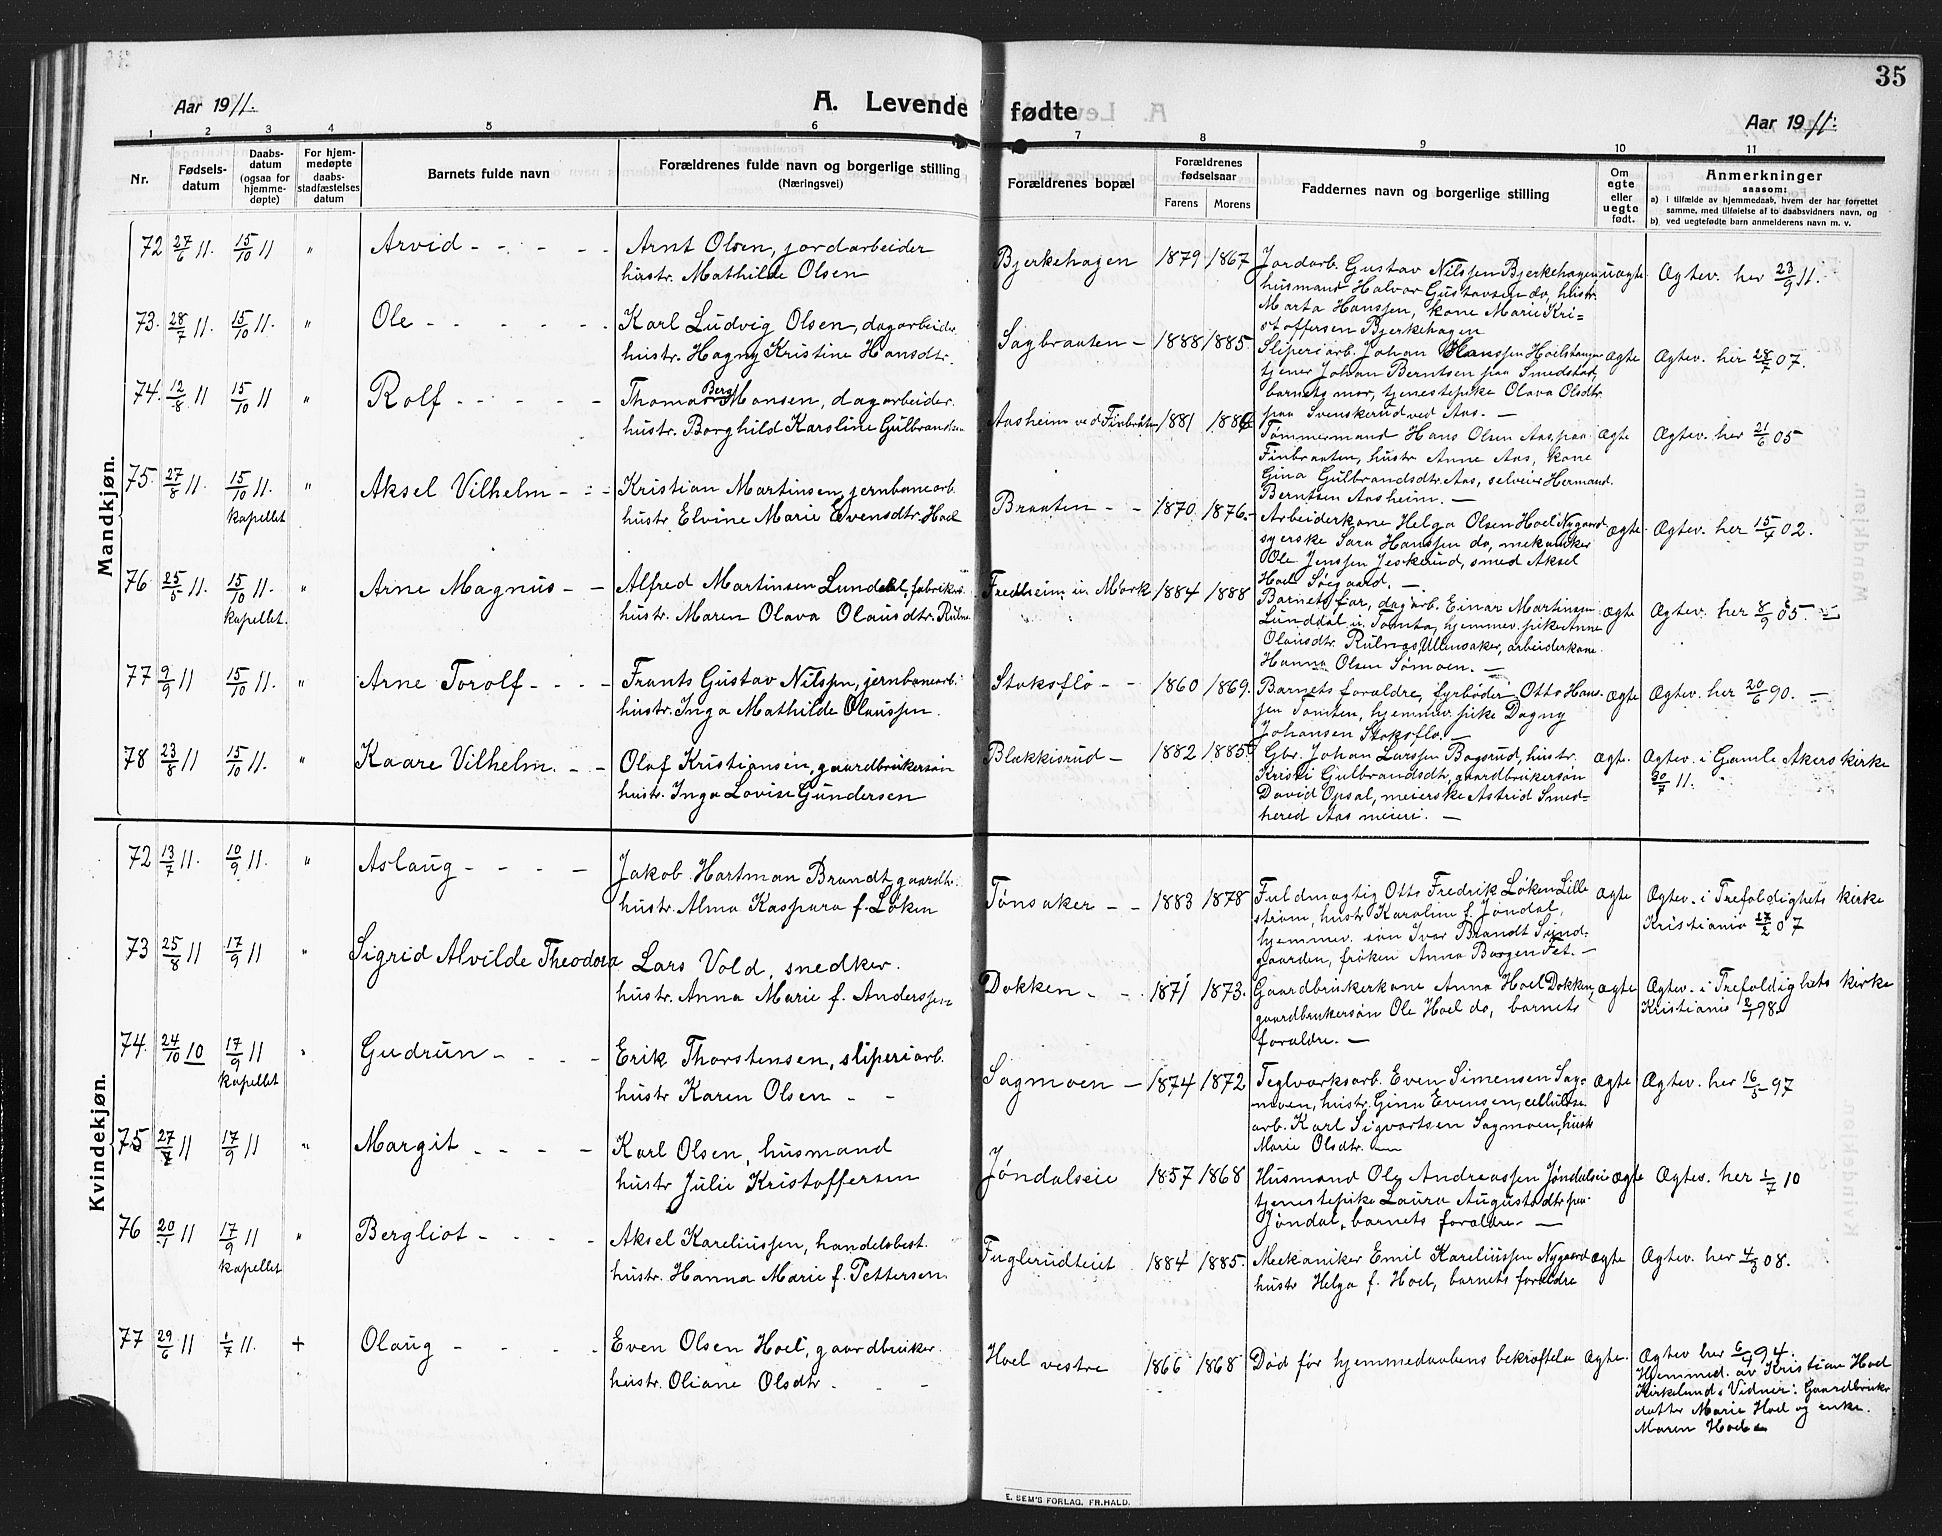 35
Aar 1911.
A. Levende fødte
Aar 1911.
1 2 3 4 5 6 7 8 9 10 11
Nr.
Fødsels-
datum
Daabs-
datum
(ogsaa for
hjemme-
døpte)
For hjem-
medøpte
daabs-
stadfæstelses
datum
Barnets fulde navn
Forældrenes fulde navn og borgerlige stilling
(Næringsvei)
Forældrenes bopæl
Forældrenes
fødselsaar
Farens Morens
Faddernes navn og borgerlige stilling
Om
egte
eller
uegte
født.
Anmerkninger
saasom:
a) i tilfælde av hjemmedaab, hvem der har forrettet
samme, med tilføielse af to daabsvidners navn, og
b) ved uegtefødte barn anmelderens navn m. v.
Mandkjøn.
72 27/6 11. 15/10 11 " Arvid
Arnt Olsen, jordarbeider
hustr. Mathilde Olsen
Bjerkehagen 1879 1867
Jordarb. Gustav Nilssen Bjerkehagen
husmand Halvor Gustavsen do, hustr.
Marta Hanssen, kone Marie Kri=
stoffersen Bjerkehagen
uægte Ægtev. her 23/9 11.
73. 28/7 11. 15/10 11. " Ole
Karl Ludvig Olsen, dagarbeider
hustr. Hagny Kristine Hansdtr.
Sagbraaten 1888 1885.
Sliperiarb. Johan Hanssen
tjener Johan Berntsen paa Smedstad,
barnets mor, tjenestepike Olava Olsdtr.
paa Svenskerud ved Aas.
ægte Ægtev. her 28/7 07.
74. 12/8 11 15/10 11 " Rolf
Thomas Berg Monsen, dagarbeider.
hustr. Borghild Karoline Gulbrandsen
Aasheim ved Finbråten 1881
Tømmermand Hans Olsen Aas paa
Finbraaten, hustr. Anne Aas, kone
Gina Gulbrandsdtr. Aas, selveier Herman
Berntsen Aasheim.
ægte Ægtev. her 21/6 05
75. 27/8 11. 15/10 11. " Aksel Vilhelm
kapellet
Kristian Martinsen, jernbanearb.
hustr Elvine Marie Evensdtr. Hoel
Braaten 1870. 1876.
Arbeiderkone Helga Olsen Hoel Nygaard
syerske Sara Hanssen do, mekaniker
Ole Jenssen Jeskerud, smed Aksel
Hoel Søgaard.
ægte Ægtev. her 15/4 02.
76 25/5 11. 15/10 11. " Arne Magnus
kapellet.
Alfred Martinsen Lunddal, fabriksarb.
hustr. Maren Olava Olausdtr. Rulnæs
Fredheim u. Mork 1884 1888
Barnets far, dagarb. Einar Martinsen
Lunddal u. Tomta, hjemmev. pike Anne
Olausdtr. Rulnæs, Ullensaker, arbeiderkone
Hanna Olsen Sømoen.
ægte Ægtev. her 8/9 05.
77 9/9 11 15/10 11. " Arne Torolf
Frants Gustav Nilssen, jernbanearb.
hustr. Inga Mathilde Olaussen.
Stoksflo 1860 1869.
Barnets forældre, fyrbøder Otto Han-
sen Tomten, hjemmev. pike Dagny
Johansen Stoksflo.
ægte Ægtev. her 20/6 90.
78 23/8 11 15/10 11. " Kaare Vilhelm.
Olaf Kristiansen, gaardbrukersøn
hustr. Inga Lovise Gundersen
Blakkisrud 1882 1885.
Gbr. Johan Larssen Bogsrud, hustr.
Kristi Gulbrandsdtr, gaardbrukersøn
David Opsal, meierske Astrid Smed=
hered Aas meieri.
ægte. Ægtev. i Gamle Akers kirke
30/7 11.
Kvindekjøn.
72 13/7 11. 10/9 11. " Aslaug
Jakob Hartman Brandt, gaardbr.
hustr. Alma Kaspara f. Løken
Tønsaker 1883 1878
Fuldmægtig Otto Fredrik Løken Lille
strøm, hustr Karoline f. Jøndal,
hjemmev. søn Ivar Brandt Sund-
gaarden, frøken Anna Borgen Fet.
ægte Ægtev. i Trefoldighets kirke
Kristiania 17/2 07
73 25/8 11 17/9 11 " Sigrid Alvilde Theodora
Lars Vold, snedker.
hustr. Anna Marie f. Anderssen
Dokken 1871 1873.
Gaardbrukerkone Anna Hoel Dokken,
gaardbrukersøn Ole Hoel do, barnets
forældre.
ægte Ægtev. i Trefoldighets kirke
Kristiania 98.
74. 24/10 10 17/9 11 Gudrun
kapellet
Erik Thorstensen, sliperiarb.
hustr Karen Olsen
Sagmoen 1874 1872
Teglværksarb. Even Simensen Sag-
moen, hustr. Gina Evensen, cellulose
arb. Karl Sigvartsen Sagmoen, hustr
Marie Olsdtr.
ægte Ægtev. her 16/5 97
75 27/7 11 17/9 11 " Margit
Karl Olsen, husmand
hustr Julie Kristoffersen
Jøndalseie 1857 1868
Husmand Ole Andreassen Jøndalseie
tjenestepike Laura Augustadtr paa
Jøndal, barnets forældre.
ægte Ægtev. her 1/7 10
76 20/1 11 17/9 11 " Bergliot
kapellet
Aksel Kareliussen, handelsbest.
hustr. Hanna Marie f. Pettersen.
Fuglerudteiet 1884 1885.
Mekaniker Emil Kareliussen Nygaard
hustr Helga f. Hoel, barnets forældre
ægte Ægtev. her 4/3 08.
77 29/6 11 1/7 11. + Olaug
Even Olsen Hoel, gaardbruker.
hustr. Oliane Olsdtr.
Hoel vestre 1866 1868
Død før hjemmedaabens bekræftelse
ægte. Ægtev her 6/4 94.
Hjemmed. av Kristian Hoel
Kirkelund. Vidner: Gaardbruker
datter Marie Hoel og enke.
Maren Hoel
E. SEM'S FORLAG, FR.HALD.